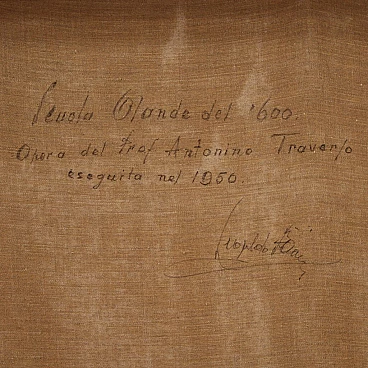 Scuola Olande del '600.
Opera del Prof Antonino Traverso
eseguita nel 1950.
Leopoldo